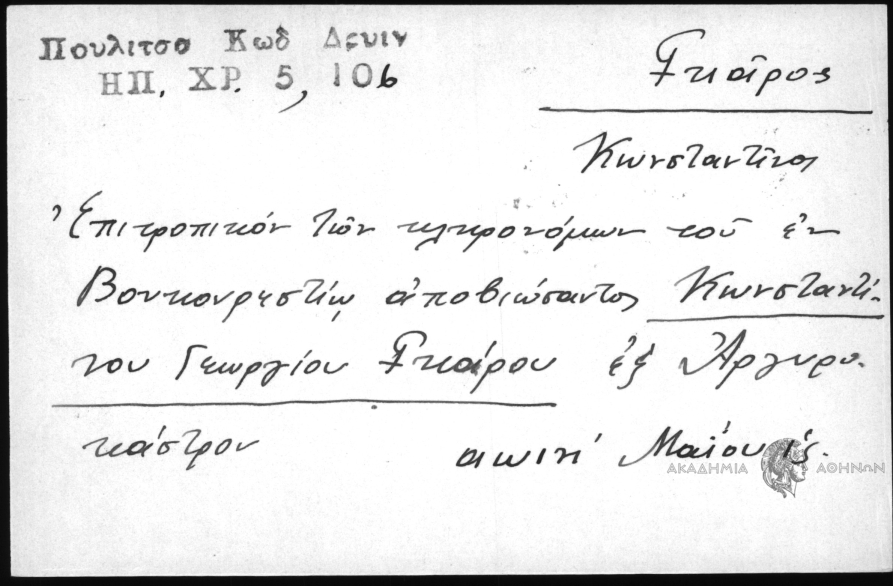 Πουλιτσα Κωδ Δρυιν
ΗΠ. ΧΡ. 5, 106
Γκαῖρος
Κωνσταντῖνος
Ἐπιτροπικόν τῶν κληρονόμων τοῦ ἐν
Βουκουρεστίῳ ἀποβιώσαντος Κωνσταντί-
νου Γεωργίου Γκαίρου ἐξ Ἀργυρο-
κάστρου αωιη' Μαΐου
ΑΚΑΔΗΜΙΑ ΑΘΗΝΩΝ